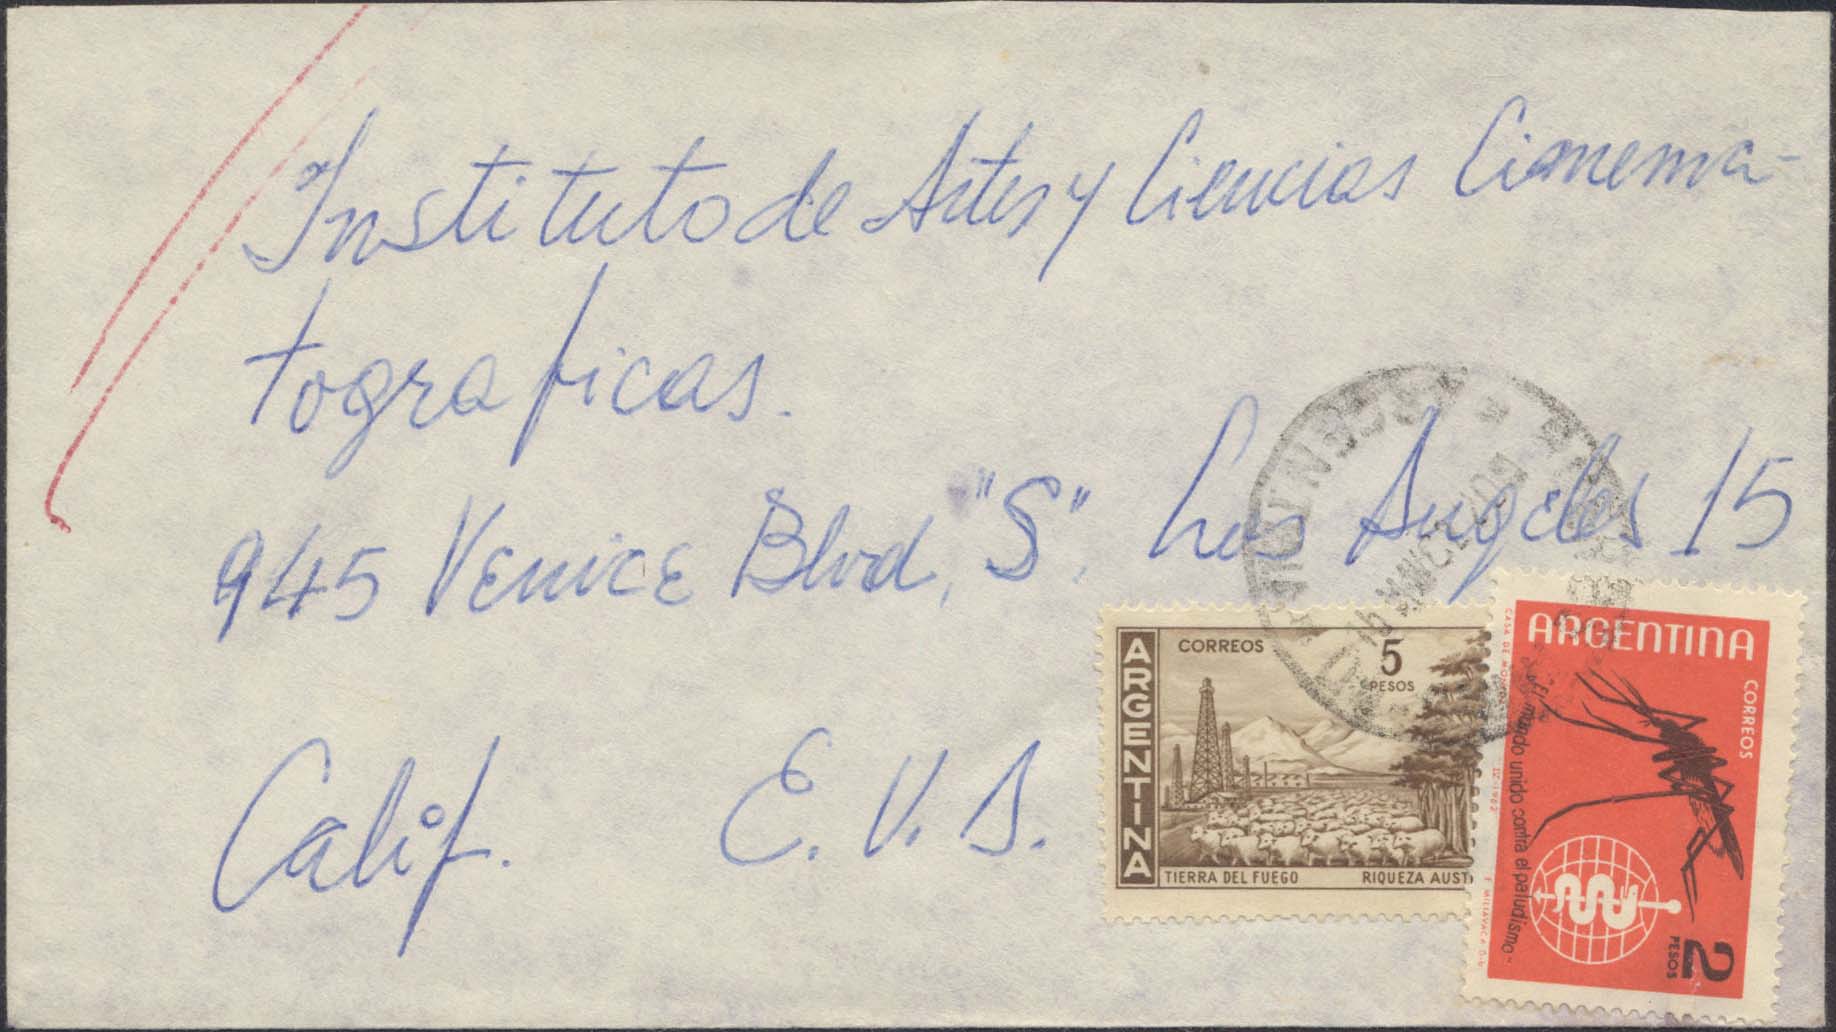 Instituto de Artes y Ciencias Cianema-
tograficas.
945 Venice Blvd, "S", Los Angeles 15
Calif. E. U. S.
ARGENTINA
CORREOS
5
PESOS
TIERRA DEL FUEGO RIQUEZA AUST
ARGENTINA
CORREOS
mundo unido contra el paludismo"
2
PESOS
ARGENTINA